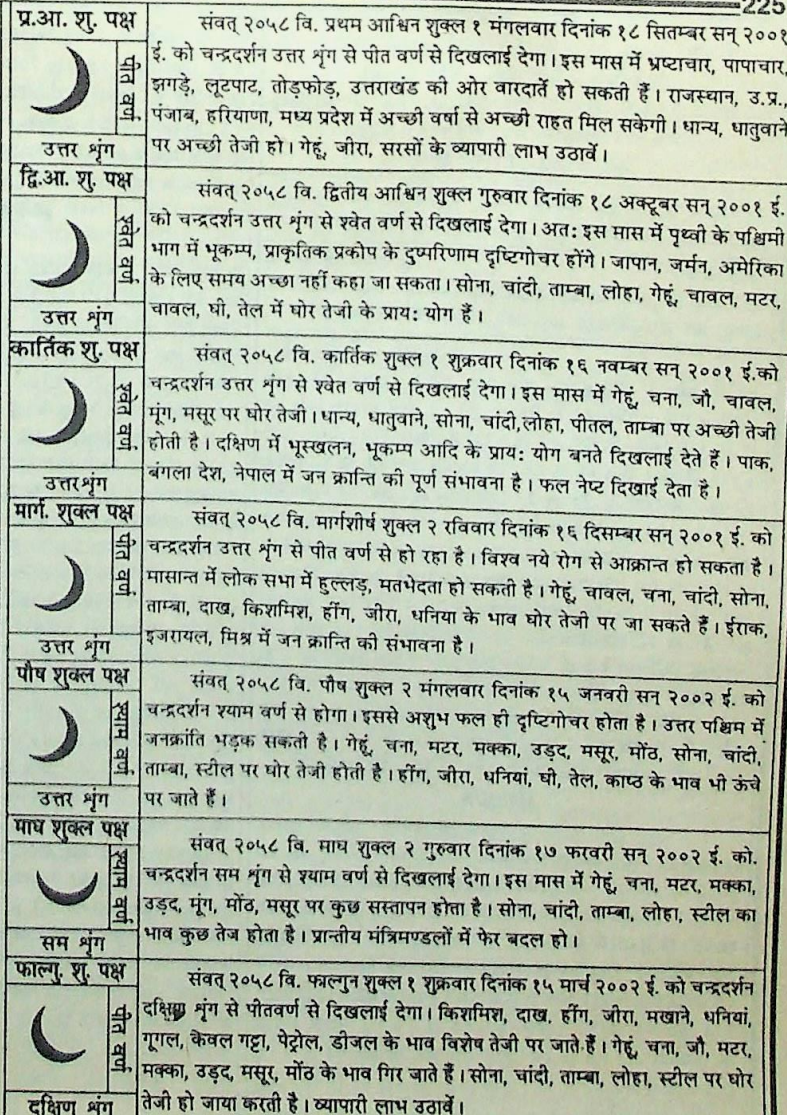 225
प्र.आ. शु. पक्ष
पीत वर्ण
उत्तर शृंग
संवत् २०५८ वि. प्रथम आश्विन शुक्ल १ मंगलवार दिनांक १८ सितम्बर सन् २००१
ई. को चन्द्रदर्शन उत्तर शृंग से पीत वर्ण से दिखलाई देगा। इस मास में भ्रष्टाचार, पापाचार,
झगड़े, लूटपाट, तोड़फोड़, उत्तराखंड की ओर वारदातें हो सकती हैं। राजस्थान, उ.प्र.,
पंजाब, हरियाणा, मध्य प्रदेश में अच्छी वर्षा से अच्छी राहत मिल सकेगी। धान्य, धातुवाने
पर अच्छी तेजी हो। गेहूं, जीरा, सरसों के व्यापारी लाभ उठावें।
द्वि.आ. शु. पक्ष
श्वेत वर्ण
उत्तर शृंग
संवत् २०५८ वि. द्वितीय आश्विन शुक्ल गुरुवार दिनांक १८ अक्टूबर सन् २००१ ई.
को चन्द्रदर्शन उत्तर शृंग से श्वेत वर्ण से दिखलाई देगा। अत: इस मास में पृथ्वी के पश्चिमी
भाग में भूकम्प, प्राकृतिक प्रकोप के दुष्परिणाम दृष्टिगोचर होंगे। जापान, जर्मन, अमेरिका
के लिए समय अच्छा नहीं कहा जा सकता। सोना, चांदी, ताम्बा, लोहा, गेहूं, चावल, मटर,
चावल, घी, तेल में घोर तेजी के प्राय: योग हैं।
कार्तिक शु. पक्ष
श्वेत वर्ण
उत्तरशृंग
संवत् २०५८ वि. कार्तिक शुक्ल १ शुक्रवार दिनांक १६ नवम्बर सन् २००१ ई.को
चन्द्रदर्शन उत्तर शृंग से श्वेत वर्ण से दिखलाई देगा। इस मास में गेहूं, चना, जौ, चावल,
मूंग, मसूर पर घोर तेजी। धान्य, धातुवाने, सोना, चांदी,लोहा, पीतल, ताम्बा पर अच्छी तेजी
होती है। दक्षिण में भूस्खलन, भूकम्प आदि के प्राय: योग बनते दिखलाई देते हैं। पाक,
बंगला देश, नेपाल में जन क्रान्ति की पूर्ण संभावना है। फल नेष्ट दिखाई देता है।
मार्ग. शुक्ल पक्ष
पीत वर्ण
उत्तर शृंग
संवत् २०५८ वि. मार्गशीर्ष शुक्ल २ रविवार दिनांक १६ दिसम्बर सन् २००१ ई. को
चन्द्रदर्शन उत्तर शृंग से पीत वर्ण से हो रहा है। विश्व नये रोग से आक्रान्त हो सकता है।
मासान्त में लोक सभा में हुल्लड़, मतभेदता हो सकती है। गेहूं, चावल, चना, चांदी, सोना,
ताम्बा, दाख, किशमिश, हींग, जीरा, धनिया के भाव घोर तेजी पर जा सकते हैं। ईराक,
इजरायल, मिश्र में जन क्रान्ति की संभावना है।
पौष शुक्ल पक्ष
श्याम वर्ण
उत्तर शृंग
संवत् २०५८ वि. पौष शुक्ल २ मंगलवार दिनांक १५ जनवरी सन् २००२ ई. को
चन्द्रदर्शन श्याम वर्ण से होगा। इससे अशुभ फल ही दृष्टिगोचर होता है। उत्तर पश्चिम में
जनक्रांति भड़क सकती है। गेहूं, चना, मटर, मक्का, उड़द, मसूर, मोंठ, सोना, चांदी,
ताम्बा, स्टील पर घोर तेजी होती है। हींग, जीरा, धनियां, घी, तेल, काष्ठ के भाव भी ऊंचे
पर जाते हैं।
माघ शुक्ल पक्ष
श्याम वर्ण
सम शृंग
संवत् २०५८ वि. माघ शुक्ल २ गुरुवार दिनांक १७ फरवरी सन् २००२ ई. को.
चन्द्रदर्शन सम शृंग से श्याम वर्ण से दिखलाई देगा। इस मास में गेहूं, चना, मटर, मक्का,
उड़द, मूंग, मोंठ, मसूर पर कुछ सस्तापन होता है। सोना, चांदी, ताम्बा, लोहा, स्टील का
भाव कुछ तेज होता है। प्रान्तीय मंत्रिमण्डलों में फेर बदल हो।
फाल्गु. शु. पक्ष
पीत वर्ण
दक्षिण शृंग
संवत् २०५८ वि. फाल्गुन शुक्ल १ शुक्रवार दिनांक १५ मार्च २००२ ई. को चन्द्रदर्शन
दक्षिण शृंग से पीतवर्ण से दिखलाई देगा। किशमिश, दाख, हींग, जीरा, मखाने, धनियां,
गूगल, केवल गट्टा, पेट्रोल, डीजल के भाव विशेष तेजी पर जाते हैं। गेहूं, चना, जौ, मटर,
मक्का, उड़द, मसूर, मोंठ के भाव गिर जाते हैं। सोना, चांदी, ताम्बा, लोहा, स्टील पर घोर
तेजी हो जाया करती है। व्यापारी लाभ उठावें।